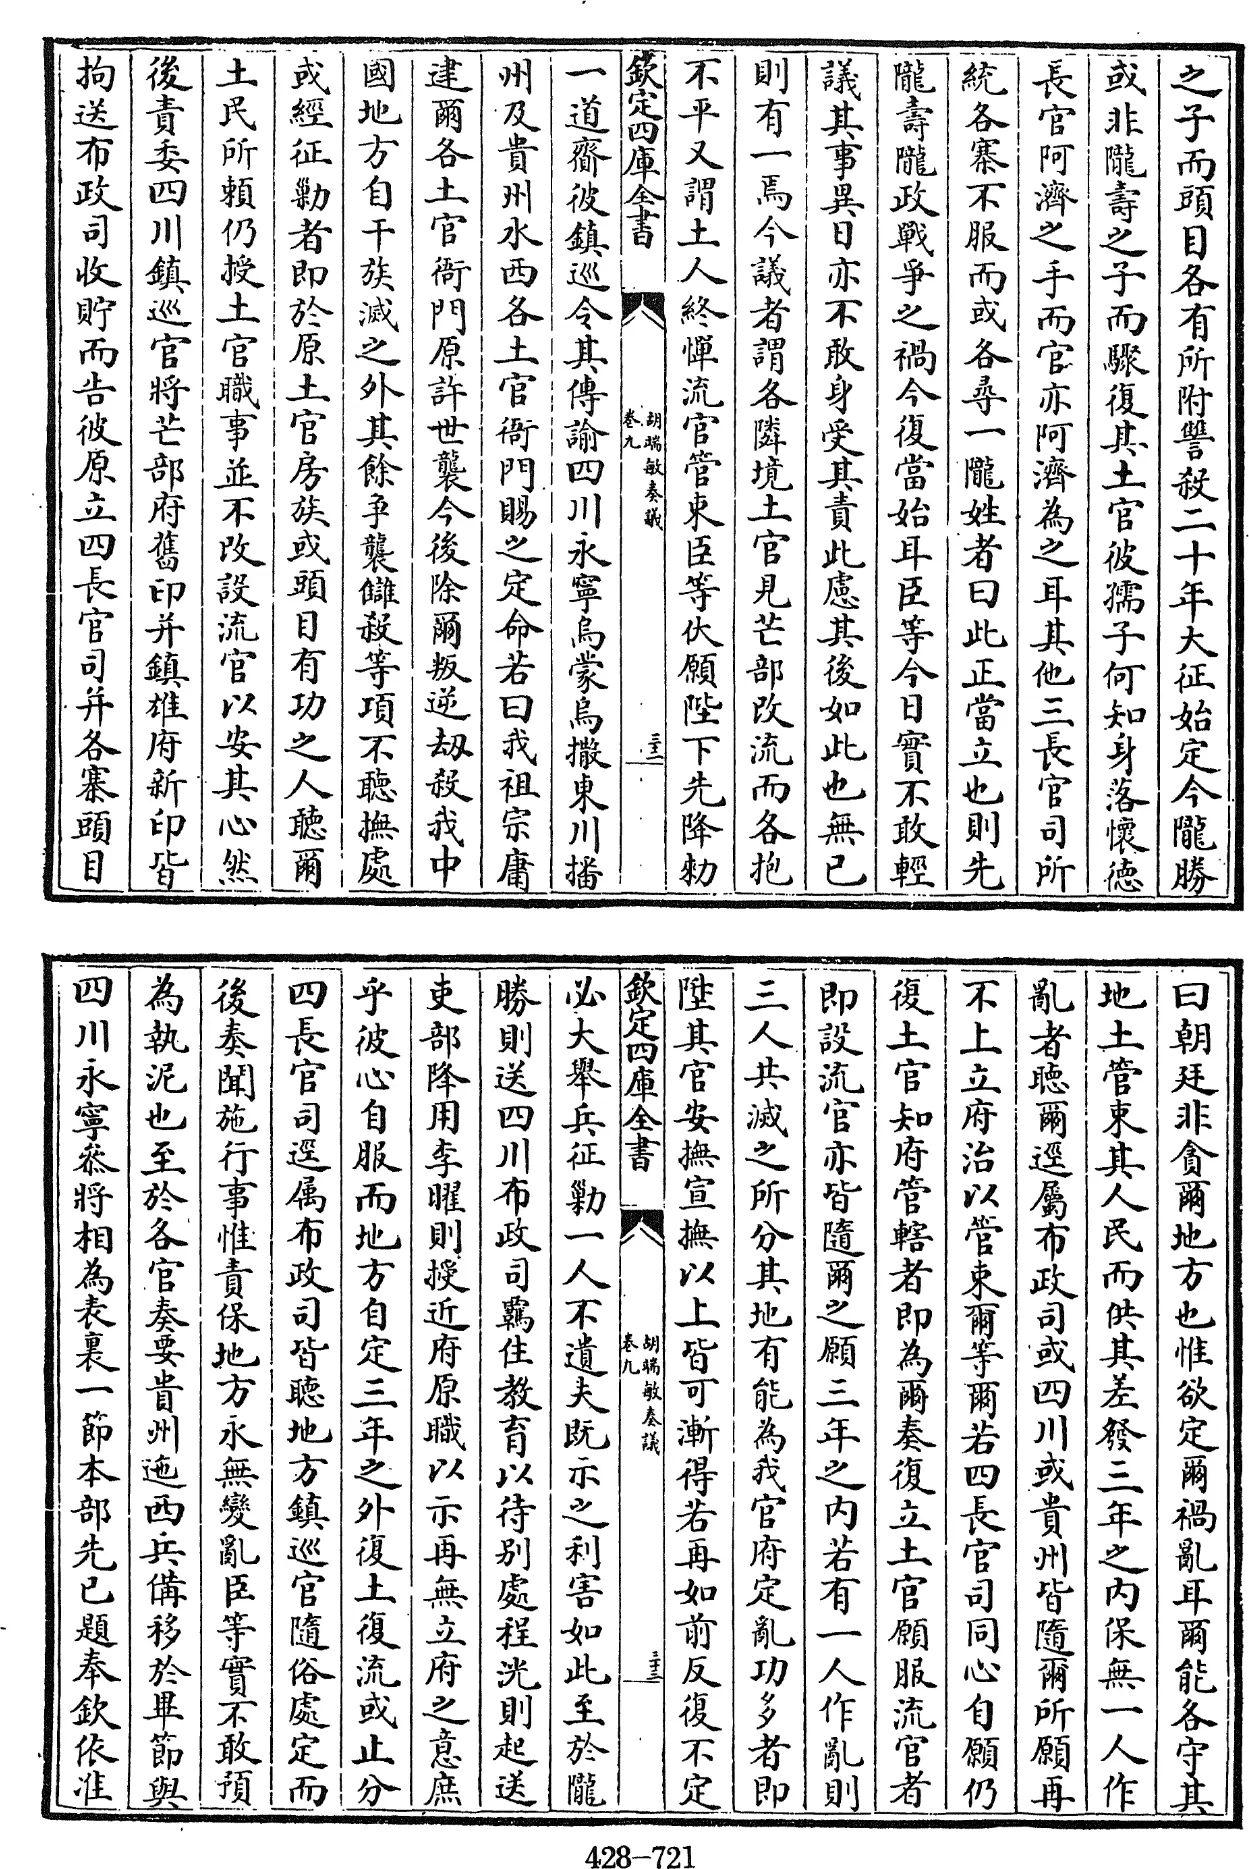 之子而頭目各有所附讐殺二十年大征始定今隴勝
或非隴壽之子而驟復其土官彼孺子何知身落懷德
長官阿濟之手而官亦阿濟為之耳其他三長官司所
統各寨不服而或各尋一隴姓者曰此正當立也則先
隴壽隴政戰爭之禍今復當始耳臣等今日實不敢輕
議其事異日亦不敢身受其責此慮其後如此也無已
則有一焉今議者謂各隣境土官見芒部改流而各抱
不平又謂土人終憚流官管束臣等伏願陛下先降勑
欽定四庫全書
胡端敏奏議
卷九
三十二
一道齎彼鎮巡令其傳諭四川永寧烏蒙烏撒東川播
州及貴州水西各土官衙門賜之定命若曰我祖宗庸
建爾各土官衙門原許世襲今後除爾叛逆刼殺我中
國地方自干族滅之外其餘爭襲讎殺等項不聽撫處
或經征勦者即於原土官房族或頭目有功之人聽爾
土民所頼仍授土官職事並不改設流官以安其心然
後責委四川鎮巡官將芒部府舊印并鎮雄府新印皆
拘送布政司收貯而告彼原立四長官司并各寨頭目
曰朝廷非貪爾地方也惟欲定爾禍亂耳爾能各守其
地土管束其人民而供其差發三年之内保無一人作
亂者聽爾逕屬布政司或四川或貴州皆隨爾所願再
不上立府治以管束爾等爾若四長官司同心自願仍
復土官知府管轄者即為爾奏復立土官願服流官者
即設流官亦皆隨爾之願三年之内若有一人作亂則
三人共滅之所分其地有能為我官府定亂功多者即
陞其官安撫宣撫以上皆可漸得若再如前反復不定
欽定四庫全書
胡端敏奏議
卷九
三十三
必大舉兵征勦一人不遺夫既示之利害如此至於隴
勝則送四川布政司羈住教育以待别處程洸則起送
吏部降用李曜則授近府原職以示再無立府之意庶
乎彼心自服而地方自定三年之外復土復流或止分
四長官司逕属布政司皆聽地方鎮巡官隨俗處定而
後奏聞施行事惟責保地方永無變亂臣等實不敢預
為執泥也至於各官奏要貴州迤西兵備移於畢節與
四川永寧叅將相為表裏一節本部先已題奉欽依准
428-721